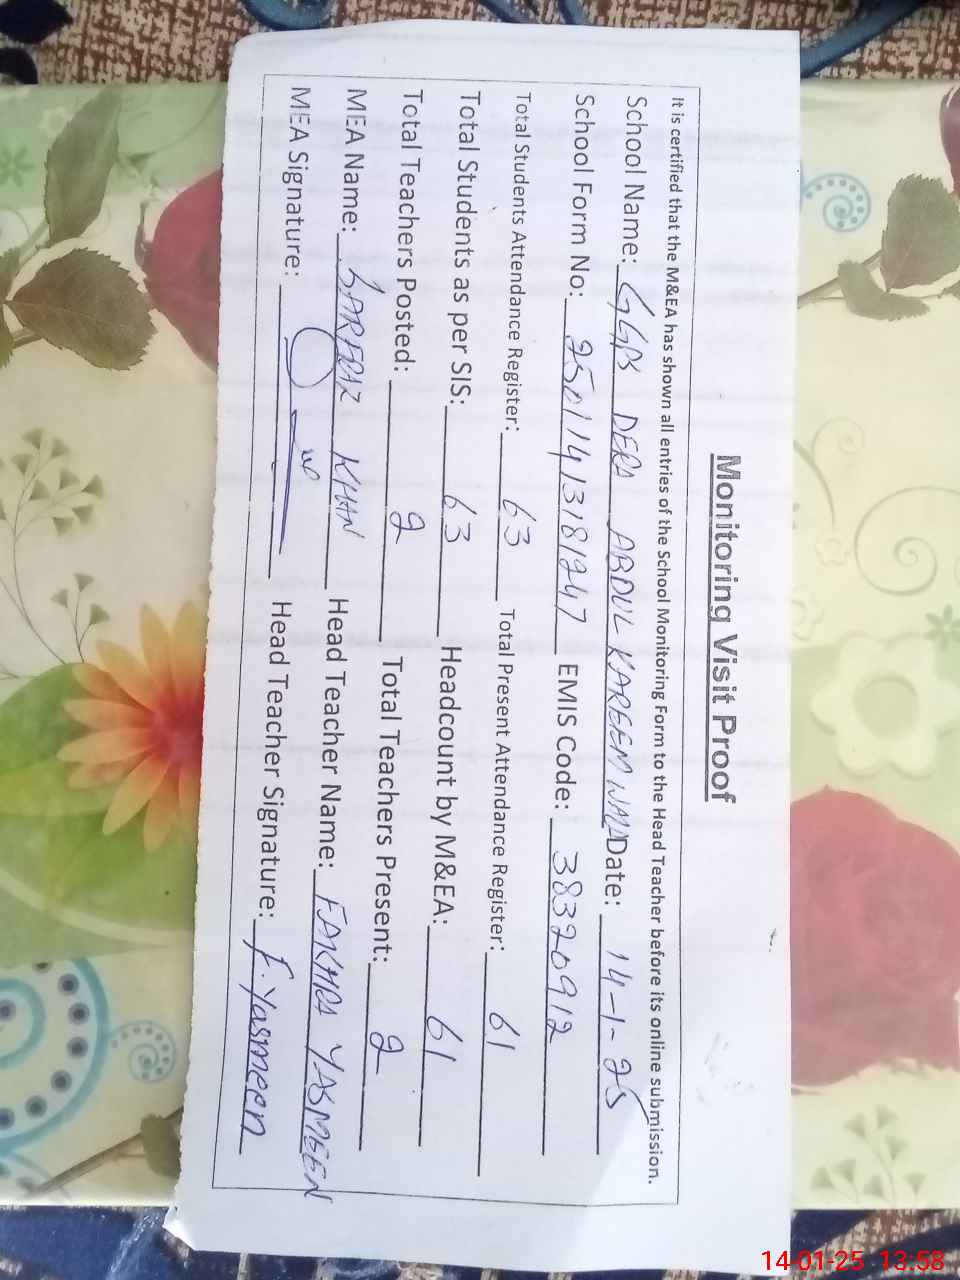 Monitoring Visit Proof
It is certified that the M&EA has shown all entries of the School Monitoring Form to the Head Teacher before its online submission.
School Name: GGPS DERA ABDUL KAREEM WALA Date: 14-1-25
School Form No: 25011413181247 EMIS Code: 38320912
Total Students Attendance Register: 63 Total Present Attendance Register: 61
Total Students as per SIS: 63 Headcount by M&EA: 61
Total Teachers Posted: 2 Total Teachers Present: 2
MEA Name: SARFRAZ KHAN Head Teacher Name: FAKHRA YASMEEN
MEA Signature: Head Teacher Signature: F. Yasmeen
14-01-25 13:58